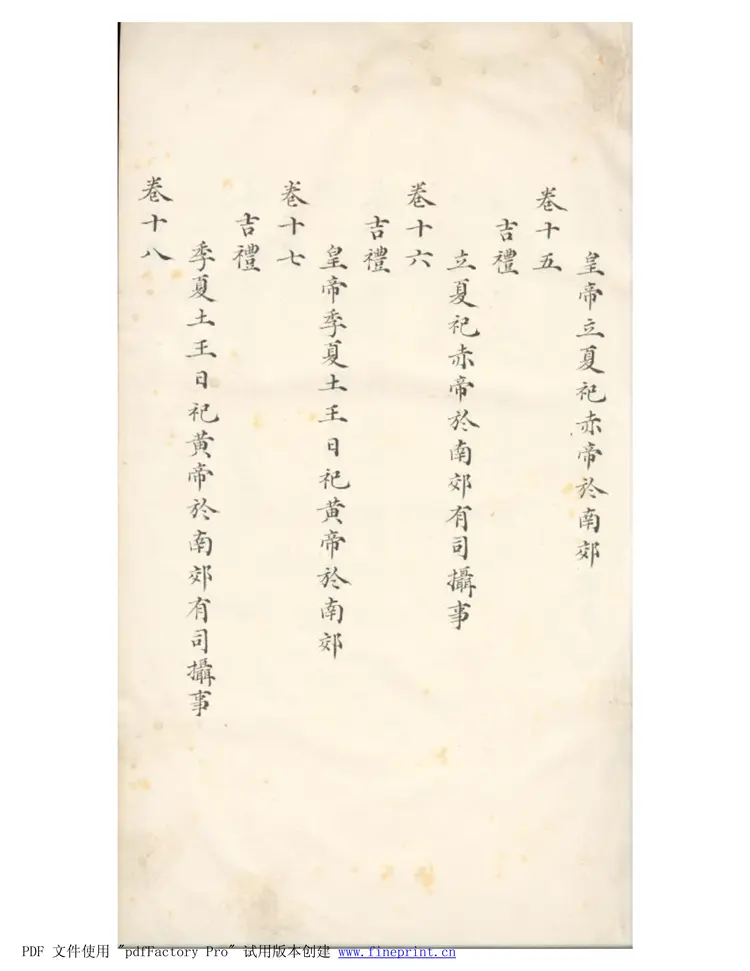 皇帝立夏祀赤帝於南郊
卷十五
吉禮
立夏祀赤帝於南郊有司攝事
卷十六
吉禮
皇帝季夏土王日祀黄帝於南郊
卷十七
吉禮
季夏土王日祀黄帝於南郊有司攝事
卷十八
PDF 文件使用 "pdfFactory Pro" 试用版本创建 www.fineprint.cn